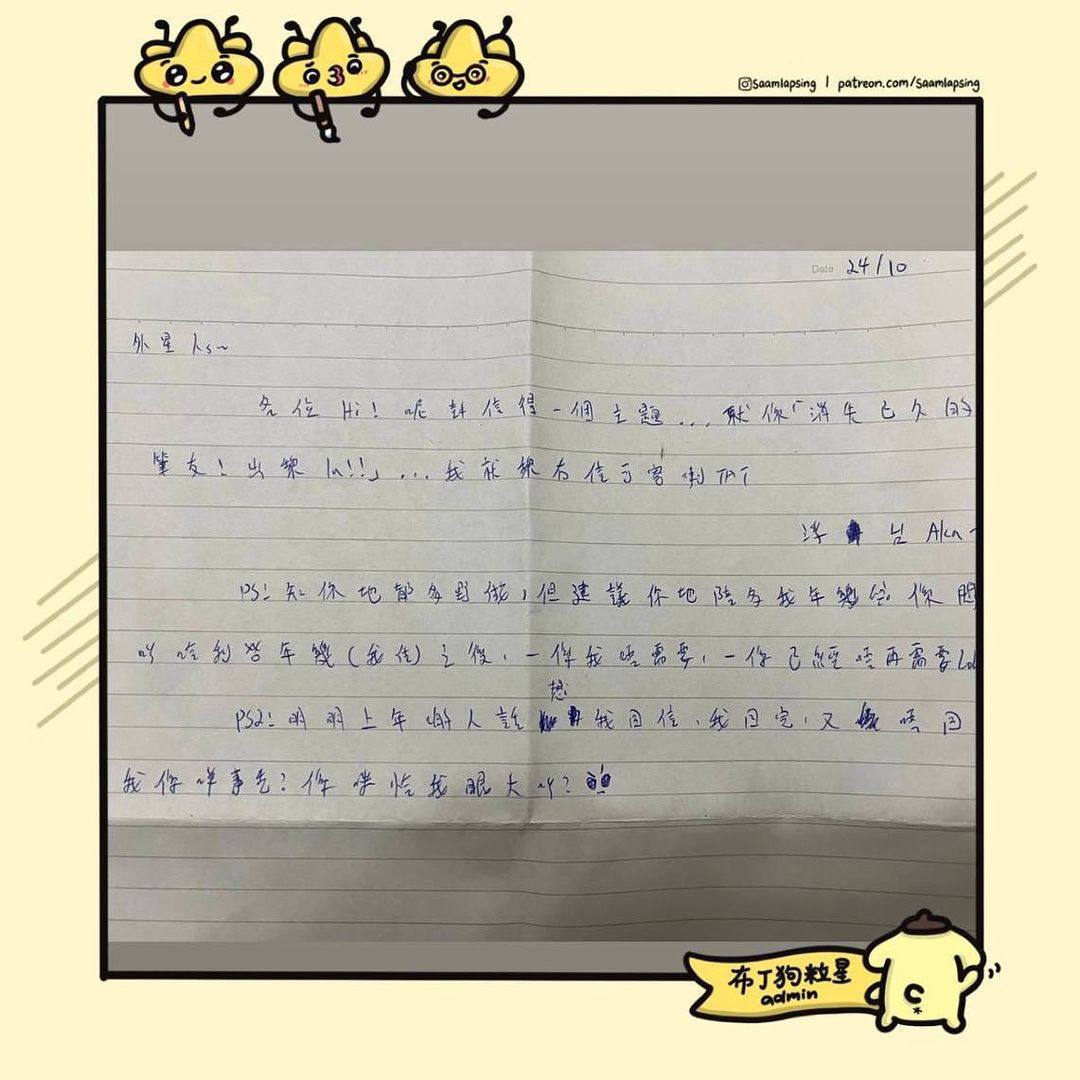 saamlapsing | patreon.com/saamlapsing
Date 24/10
外星人s~
各位 Hi! 呢封信得一個主題... 就係「消失已久的
筆友!出嚟 la!!」...我就嚟冇信可寄喇TAT
洋 Aka
PS: 知你地都多野做,但建議你地陪多我年幾
年幾(我估)之後,一係我唔需要,一係已經唔再需要Lol
PS2: 明明上年 人話 想 我回信,我回完,又 唔回
我係咩事先?係咪恰我眼大吖?
布丁狗粒星
admin